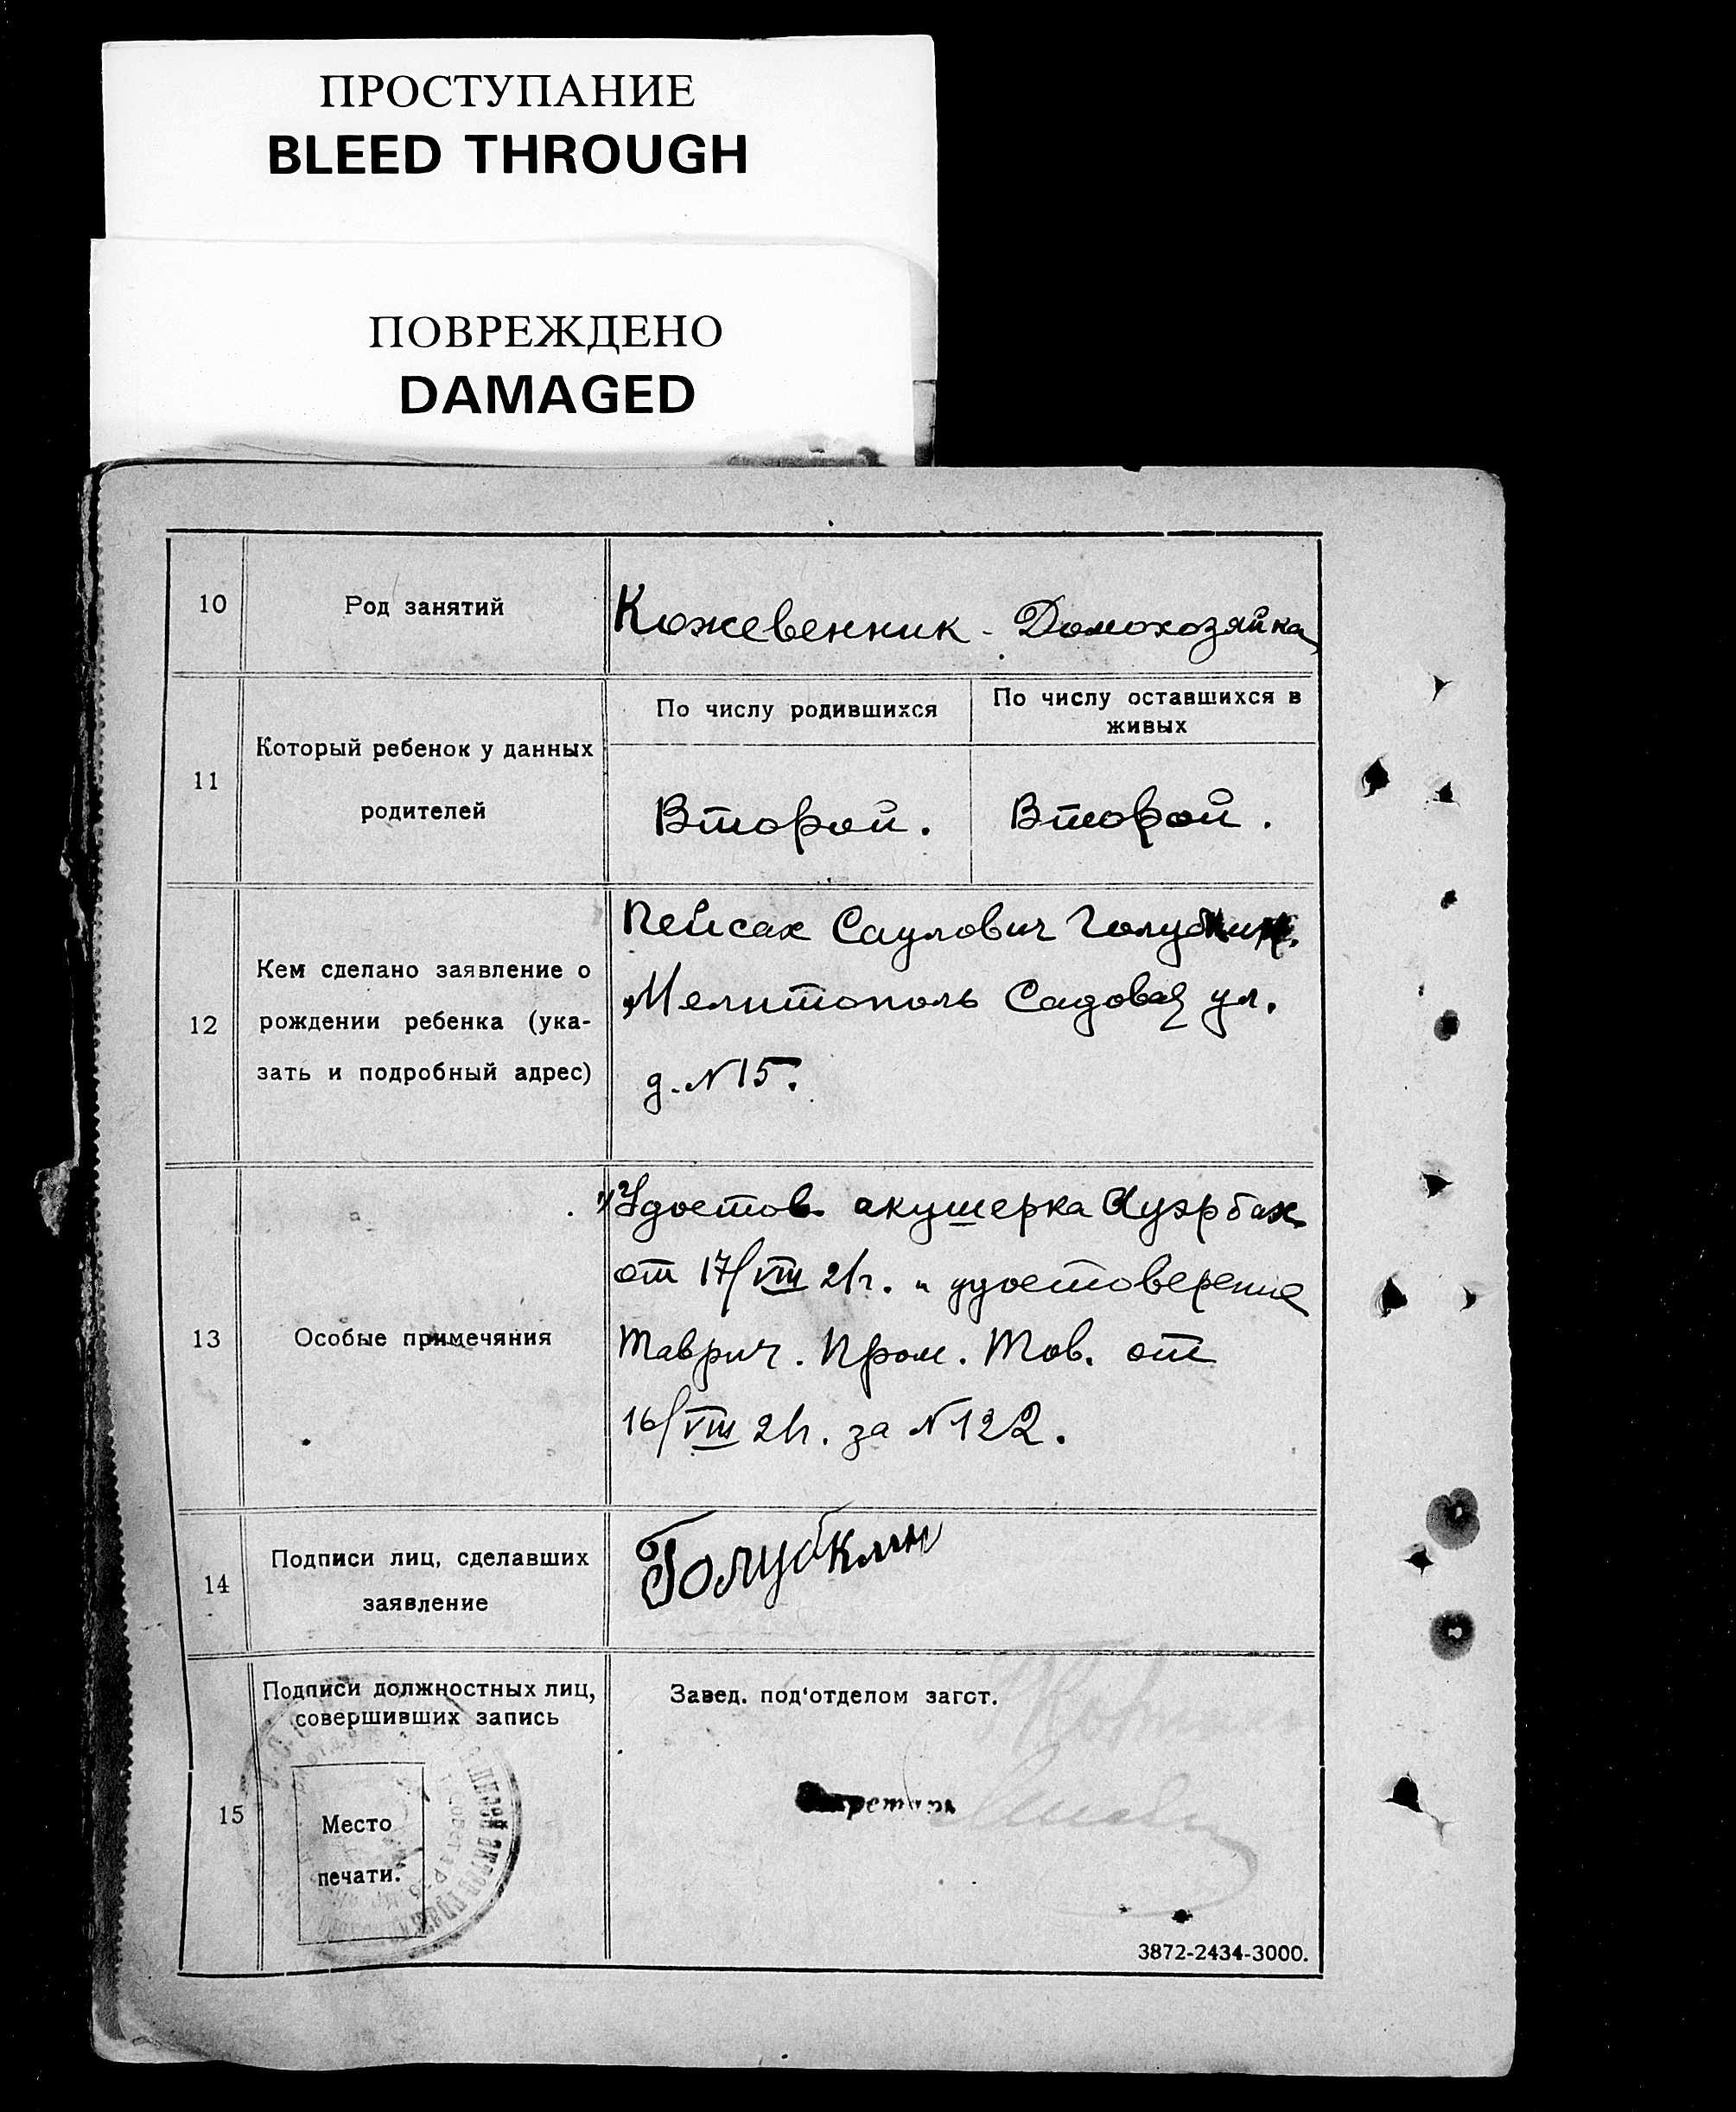 ПРОСТУПАНИЕ
BLEED THROUGH
ПОВРЕЖДЕНО
DAMAGED
10
Род занятий
Кожевенник - Домохозяйка
11
Который ребенок у данных
родителей
По числу родившихся
По числу оставшихся в
живых
Второй.
Второй.
12
Кем сделано заявление о
рождении ребенка (ука-
зать и подробный адрес)
Пейсах Саулович Голубкин.
Мелитополь Садовая ул.
д. N 15.
13
Особые примечяния
Удостов. акушерка Ауэрбах
от 17/VIII 21г. и удостоверение
Таврич. Пром. Тов. от
16/VIII 21г. за N 122.
14
Подписи лиц, сделавших
заявление
Голубкин
15
Подписи должностных лиц,
совершивших запись
Место
печати.
Завед. под'отделом загст.
Секретарь
3872-2434-3000.